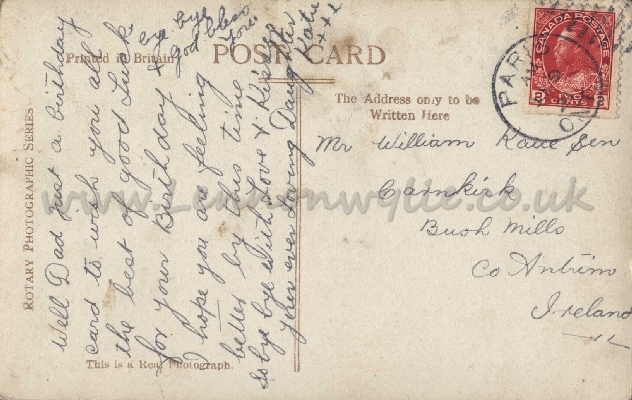 POST CARD
Printed in Britain
The Address only to be
Written Here
ROTARY PHOTOGRAPHIC SERIES
This is a Real Photograph.
Well Dad just a birthday
card to wish you all
the best of good Luck
for your Birthday &
I hope you are feeling
better by this time
So bye bye with Love & Kisses
your ever Loving Daughter
Katie
xxx
bye bye
God bless
you
Mr William Kane Sen
Carnkirk
Bush Mills
Co Antrim
Ireland
CANADA POSTAGE
2 CENTS 2
PARIS
ONT
www.Londonwyllie.co.uk